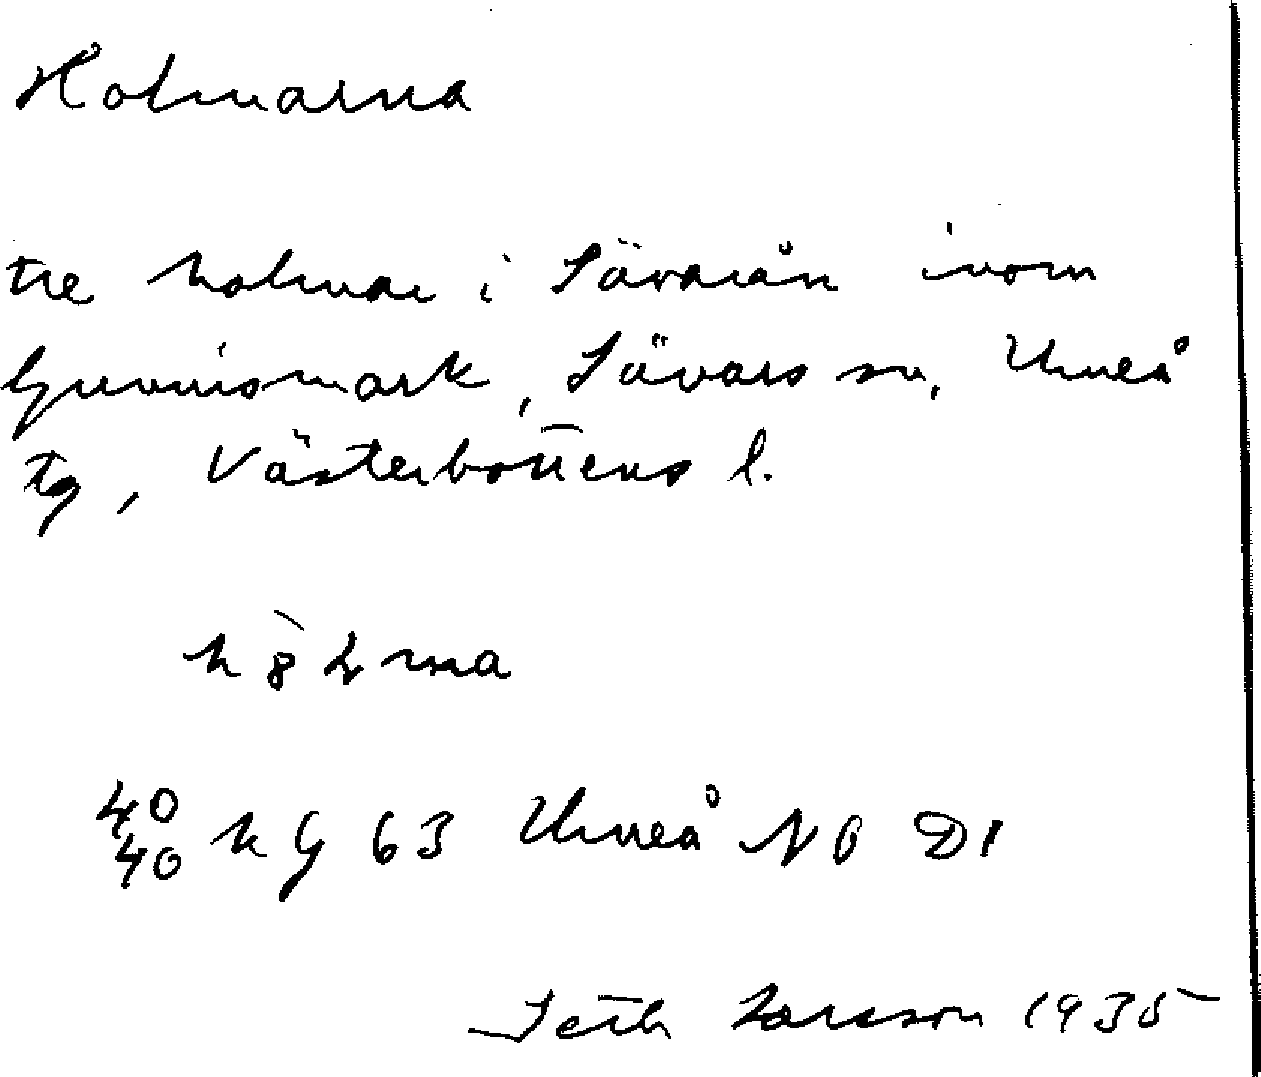 Holmarna
tre holmar i Sävarån inom
Gunnismark, Sävars sn, Umeå
tg, Västerbottens l.
40 40 kg 63 Umeå NO D1
Seth Larsson 1935